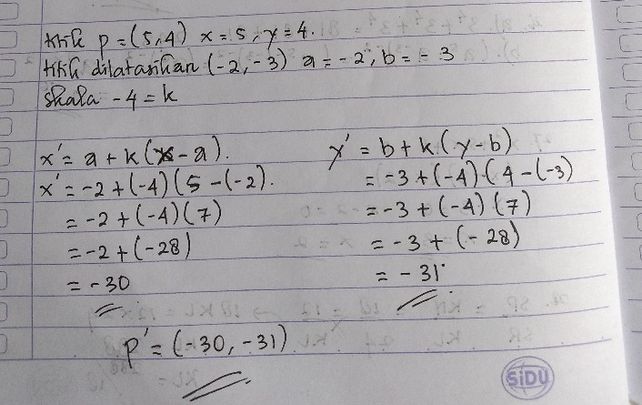 titik p = (5,4) x = 5, y = 4.
titik dilatasikan (-2, -3) a = -2, b = -3
skala -4 = k
x' = a + k (x - a).
x' = -2 + (-4) (5 - (-2).
= -2 + (-4) (7)
= -2 + (-28)
= -30
y' = b + k (y - b)
= -3 + (-4) (4 - (-3)
= -3 + (-4) (7)
= -3 + (-28)
= -31.
p' = (-30, -31)
SiDU